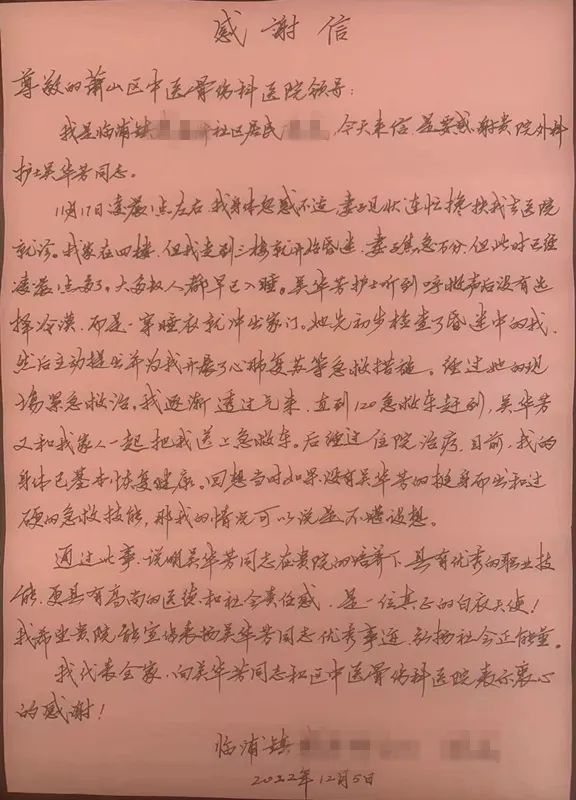 感谢信
尊敬的萧山区中医骨伤科医院领导：
我是临浦镇 社区居民 ，今天来信，是要感谢贵院外科
护士吴华芳同志。
11月17日凌晨1点左右，我身体忽感不适，妻子见状连忙搀扶我去医院
就诊。我家在四楼，但我走到三楼就开始昏迷，妻子焦急万分，但此时已经
凌晨1点多了，大多数人都早已入睡。吴华芳护士听到呼救声后没有选
择冷漠，而是一穿睡衣就冲出家门。她先初步检查了昏迷中的我，
然后主动提出并为我开展了心肺复苏等急救措施。经过她的现
场紧急救治，我逐渐透过气来，直到120急救车赶到，吴华芳
又和我家人一起把我送上急救车。后经过住院治疗，目前，我的
身体已基本恢复健康。回想当时如果没有吴华芳的挺身而出和过
硬的急救技能，那我的情况可以说是不堪设想。
通过此事，说明吴华芳同志在贵院的培养下，具有优秀的职业技
能，更具有高尚的医德和社会责任感，是一位真正的白衣天使！
我希望贵院能宣传表扬吴华芳同志优秀事迹，弘扬社会正能量。
我代表全家，向吴华芳同志和区中医骨伤科医院表示衷心
的感谢！
临浦镇
2022年12月5日